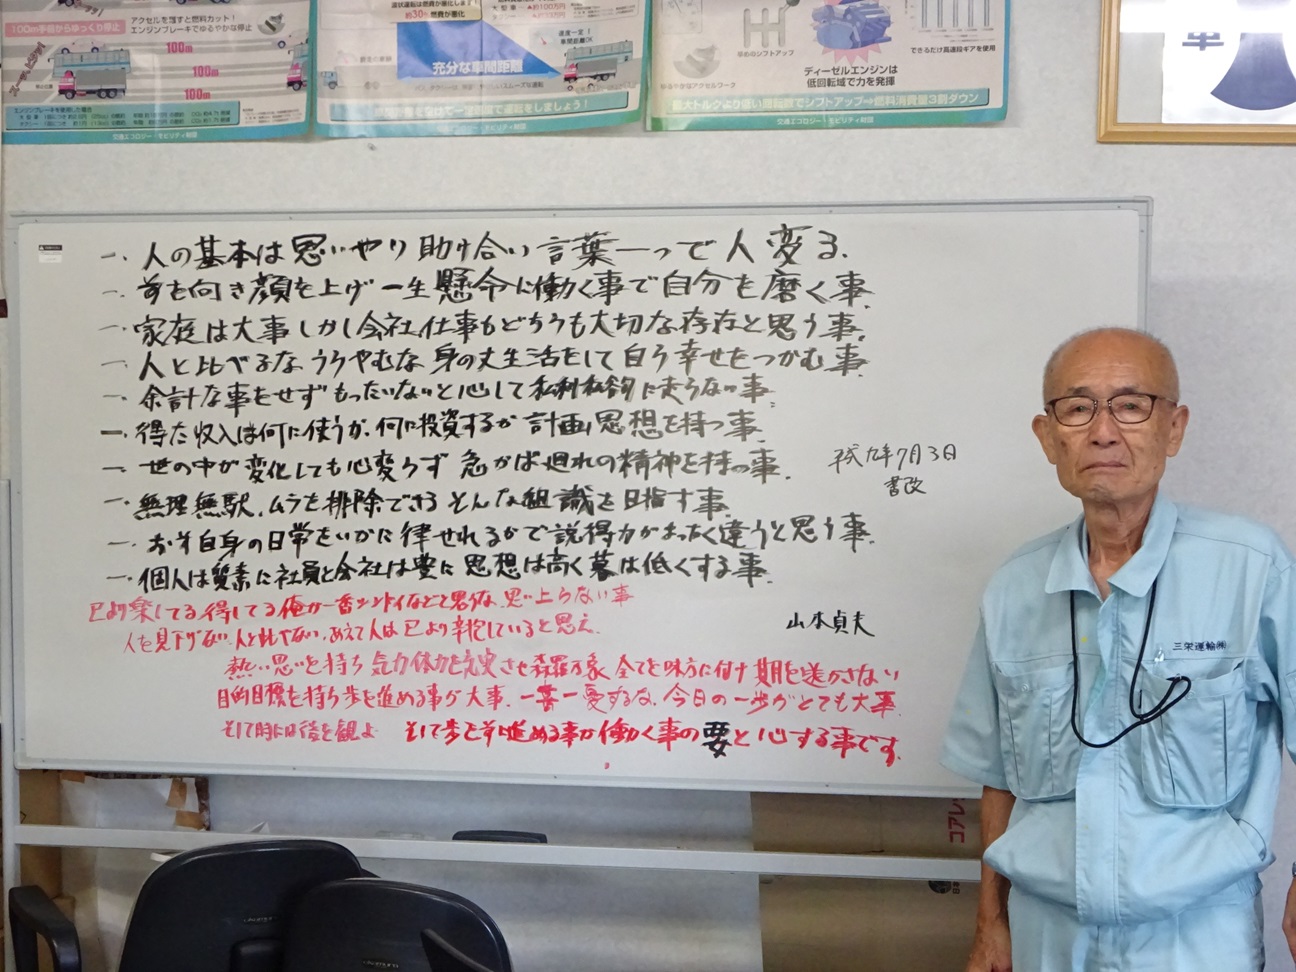 100m手前からゆっくり停止
アクセルを離すと燃料カット!
エンジンブレーキでゆるやかな停止
100m
100m
100m
交通エコロジー・モビリティ財団
約30%燃費が悪化
充分な車間距離
交通エコロジー・モビリティ財団
早めのシフトアップ
ゆるやかなアクセルワーク
ディーゼルエンジンは
低回転域で力を発揮
できるだけ高速段ギアを使用
最大トルクより低い回転数でシフトアップ→燃料消費量3割ダウン
交通エコロジー・モビリティ財団
一、人の基本は思いやり助け合い言葉一つで人変る、
一、前を向き顔を上げ一生懸命に働く事で自分を磨く事、
一、家庭は大事しかし会社仕事もどちらも大切な存在と思う事、
一、人と比べるなうらやむな身の丈生活をして自ら幸せをつかむ事、
一、余計な事をせずもったいないと心して私利私欲に走らない事、
一、得た収入は何に使うか、何に投資するか計画思想を持つ事、
一、世の中が変化しても心変らず急がば廻れの精神を持つ事、
平成九年7月3日
書改
一、無理無駄、ムラを排除できるそんな組識を目指す事、
一、お前自身の日常をいかに律せれるかで説得力がまったく違うと思う事、
一、個人は質素に社員と会社は豊に思想は高く暮は低くする事、
己より楽してる得してる俺が一番シンドイなどと思い上らない事
山本貞夫
人を見下げない、人と比べない、あえて人は己より辛抱していると思え、
熱い思いを持ち気力体力を充実させ森羅万象全てを味方に付け期を逃がさない
目的目標を持ち歩を進める事が大事、一喜一憂するな、今日の一歩がとても大事、
そして時には後を観よ そして歩を前に進める事が働く事の要と心する事です、
三栄運輸㈱